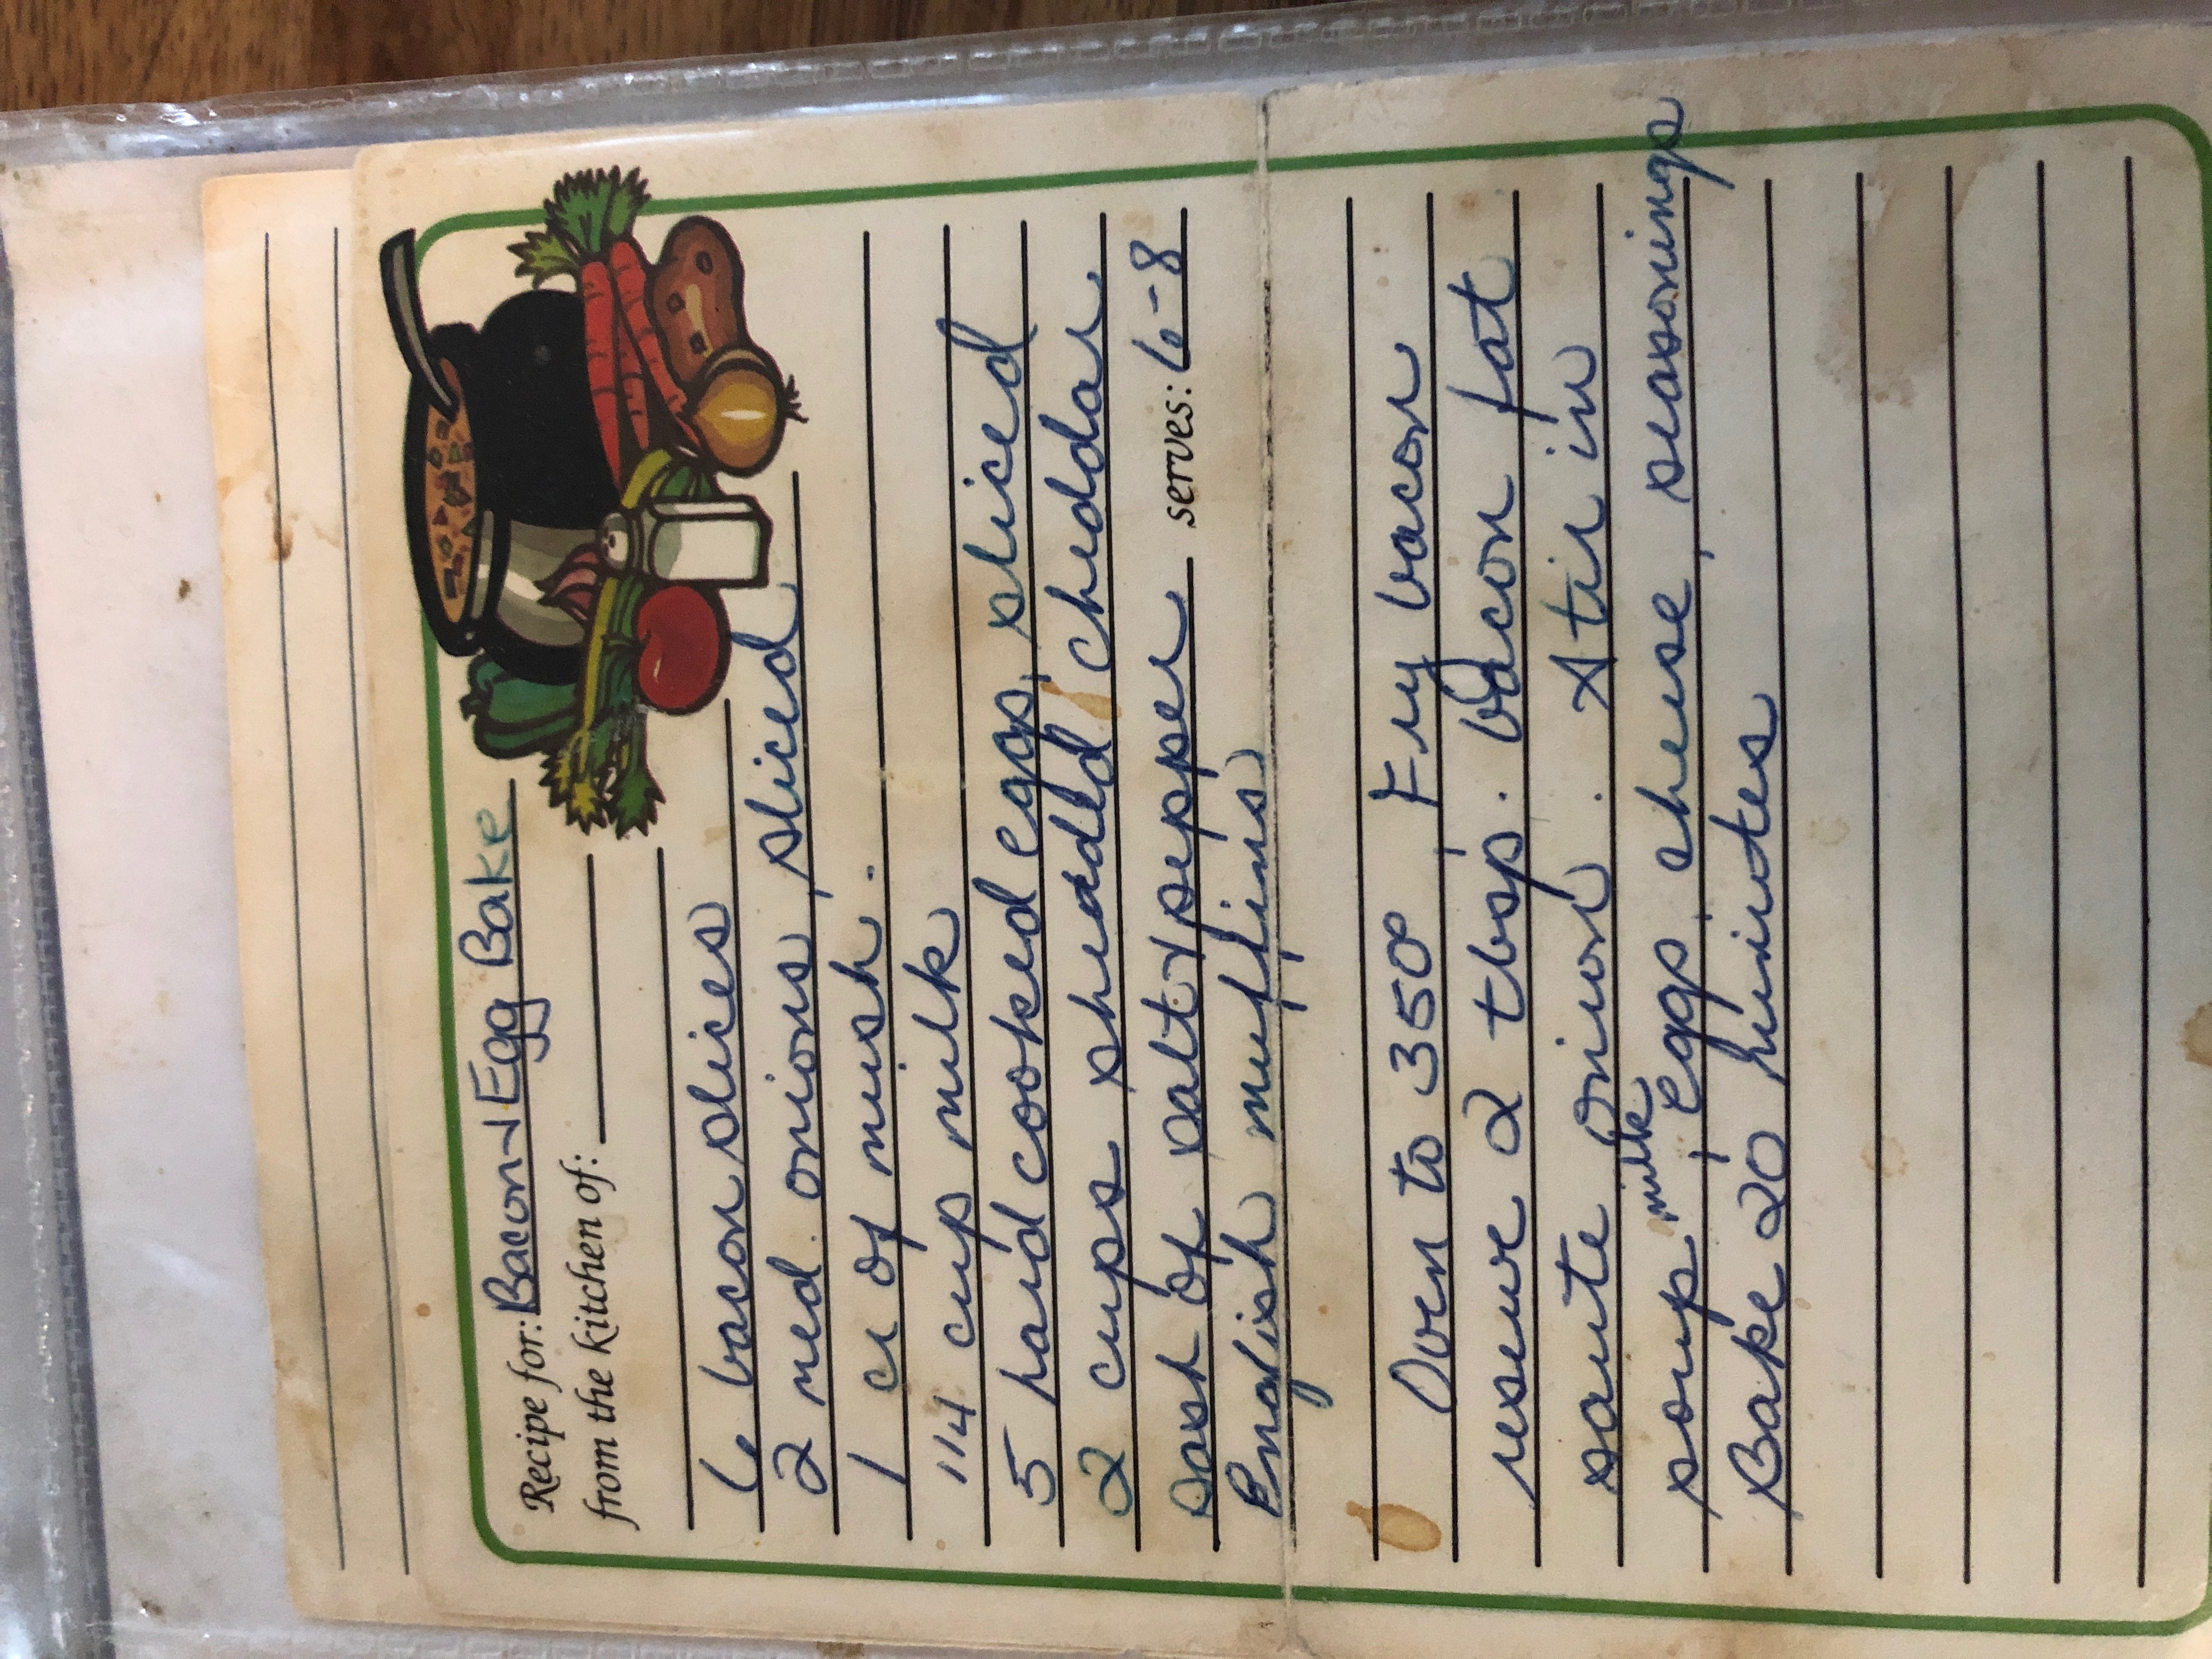 Recipe for: Bacon + Egg Bake
from the kitchen of:
6 bacon slices
2 med. onions, sliced
1 cr of mush.
1/4 cup milk
5 hard cooked eggs, sliced
2 cups shredded cheddar
Dash of salt + pepper serves: 6-8
English muffins
Oven to 350° Fry bacon,
reserve 2 tbsp. bacon fat
saute onion. Stir in
soup, milk, eggs, cheese, seasonings
Bake 20 minutes